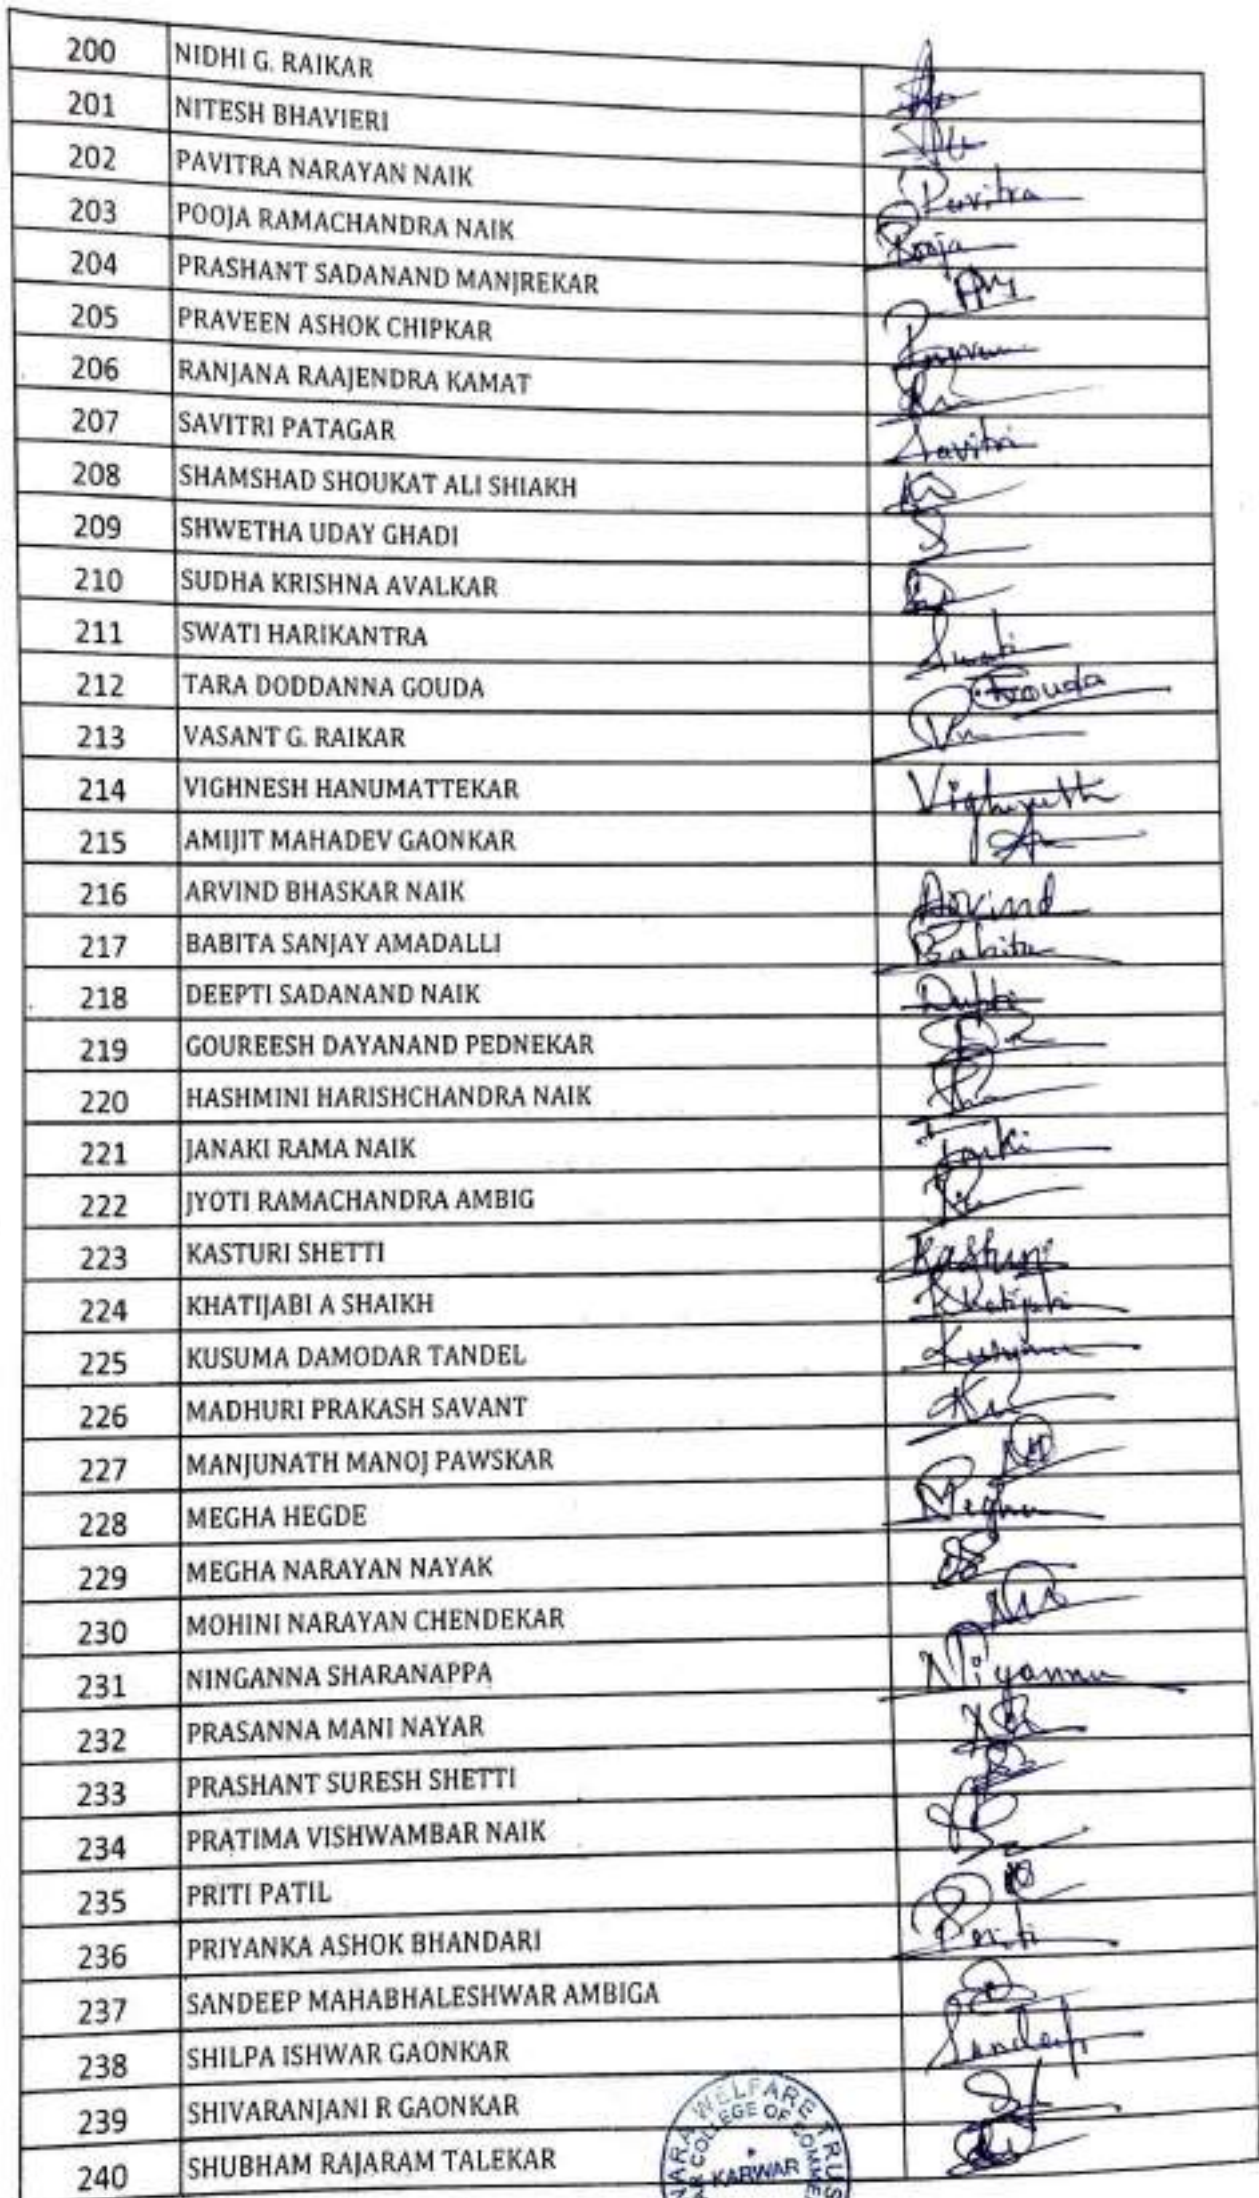 200 NIDHI G. RAIKAR
201 NITESH BHAVIERI
202 PAVITRA NARAYAN NAIK Pavitra
203 POOJA RAMACHANDRA NAIK Pooja
204 PRASHANT SADANAND MANJREKAR
205 PRAVEEN ASHOK CHIPKAR
206 RANJANA RAAJENDRA KAMAT
207 SAVITRI PATAGAR Savitri
208 SHAMSHAD SHOUKAT ALI SHIAKH
209 SHWETHA UDAY GHADI
210 SUDHA KRISHNA AVALKAR
211 SWATI HARIKANTRA Swati
212 TARA DODDANNA GOUDA Gouda
213 VASANT G. RAIKAR
214 VIGHNESH HANUMATTEKAR
215 AMIJIT MAHADEV GAONKAR
216 ARVIND BHASKAR NAIK Arvind
217 BABITA SANJAY AMADALLI Babita
218 DEEPTI SADANAND NAIK
219 GOUREESH DAYANAND PEDNEKAR
220 HASHMINI HARISHCHANDRA NAIK
221 JANAKI RAMA NAIK
222 JYOTI RAMACHANDRA AMBIG
223 KASTURI SHETTI
224 KHATIJABI A SHAIKH
225 KUSUMA DAMODAR TANDEL
226 MADHURI PRAKASH SAVANT
227 MANJUNATH MANOJ PAWSKAR
228 MEGHA HEGDE Megha
229 MEGHA NARAYAN NAYAK
230 MOHINI NARAYAN CHENDEKAR
231 NINGANNA SHARANAPPA
232 PRASANNA MANI NAYAR
233 PRASHANT SURESH SHETTI
234 PRATIMA VISHWAMBAR NAIK
235 PRITI PATIL
236 PRIYANKA ASHOK BHANDARI Priti
237 SANDEEP MAHABHALESHWAR AMBIGA
238 SHILPA ISHWAR GAONKAR Sandeep
239 SHIVARANJANI R GAONKAR
240 SHUBHAM RAJARAM TALEKAR
WELFARE
COLLEGE OF
KARWAR